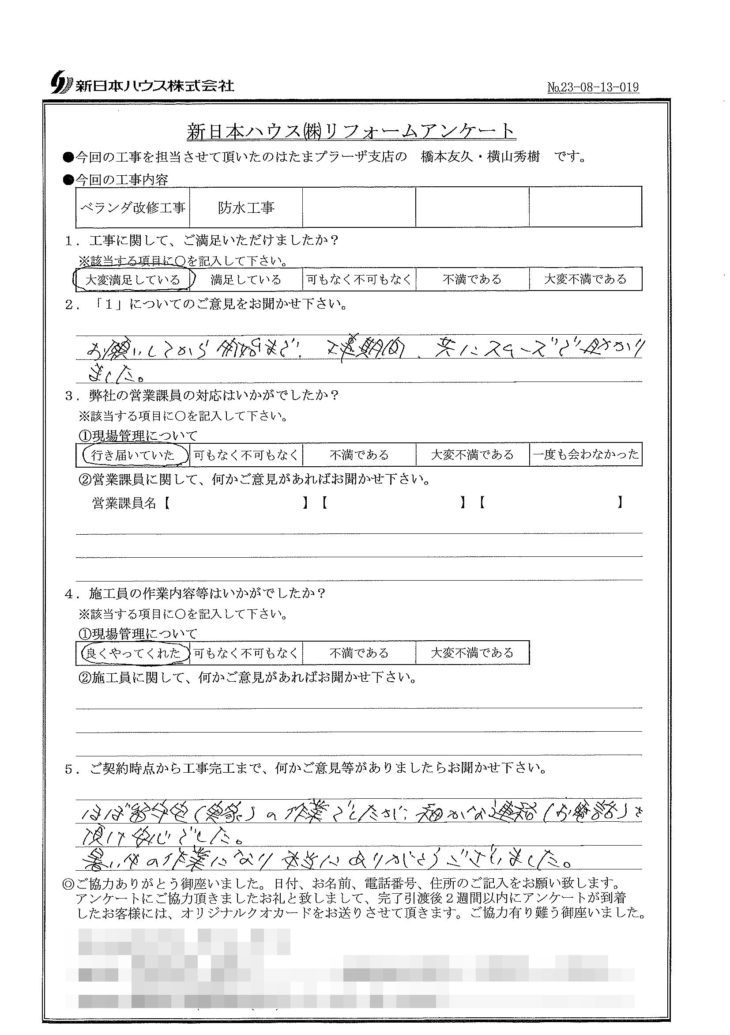 新日本ハウス株式会社
No.23-08-13-019
新日本ハウス㈱リフォームアンケート
●今回の工事を担当させて頂いたのはたまプラーザ支店の 橋本友久・横山秀樹 です。
●今回の工事内容
ベランダ改修工事 防水工事
1．工事に関して、ご満足いただけましたか？
※該当する項目に○を記入して下さい。
大変満足している 満足している 可もなく不可もなく 不満である 大変不満である
2．「1」についてのご意見をお聞かせ下さい。
お願いしてから開始まで、工事期間、共にスムーズで助かり
ました。
3．弊社の営業課員の対応はいかがでしたか？
※該当する項目に○を記入して下さい。
①現場管理について
行き届いていた 可もなく不可もなく 不満である 大変不満である 一度も会わなかった
②営業課員に関して、何かご意見があればお聞かせ下さい。
営業課員名【 】【 】【 】
4．施工員の作業内容等はいかがでしたか？
※該当する項目に○を記入して下さい。
①現場管理について
良くやってくれた 可もなく不可もなく 不満である 大変不満である
②施工員に関して、何かご意見があればお聞かせ下さい。
5．ご契約時点から工事完工まで、何かご意見等がありましたらお聞かせ下さい。
ほぼ留守宅(実家)の作業でしたが、細かな連絡(お電話)を
頂け安心でした。
暑い中の作業になり本当にありがとうございました。
◎ご協力ありがとう御座いました。日付、お名前、電話番号、住所のご記入をお願い致します。
アンケートにご協力頂きましたお礼と致しまして、完了引渡後２週間以内にアンケートが到着
したお客様には、オリジナルクオカードをお送りさせて頂きます。ご協力有り難う御座いました。